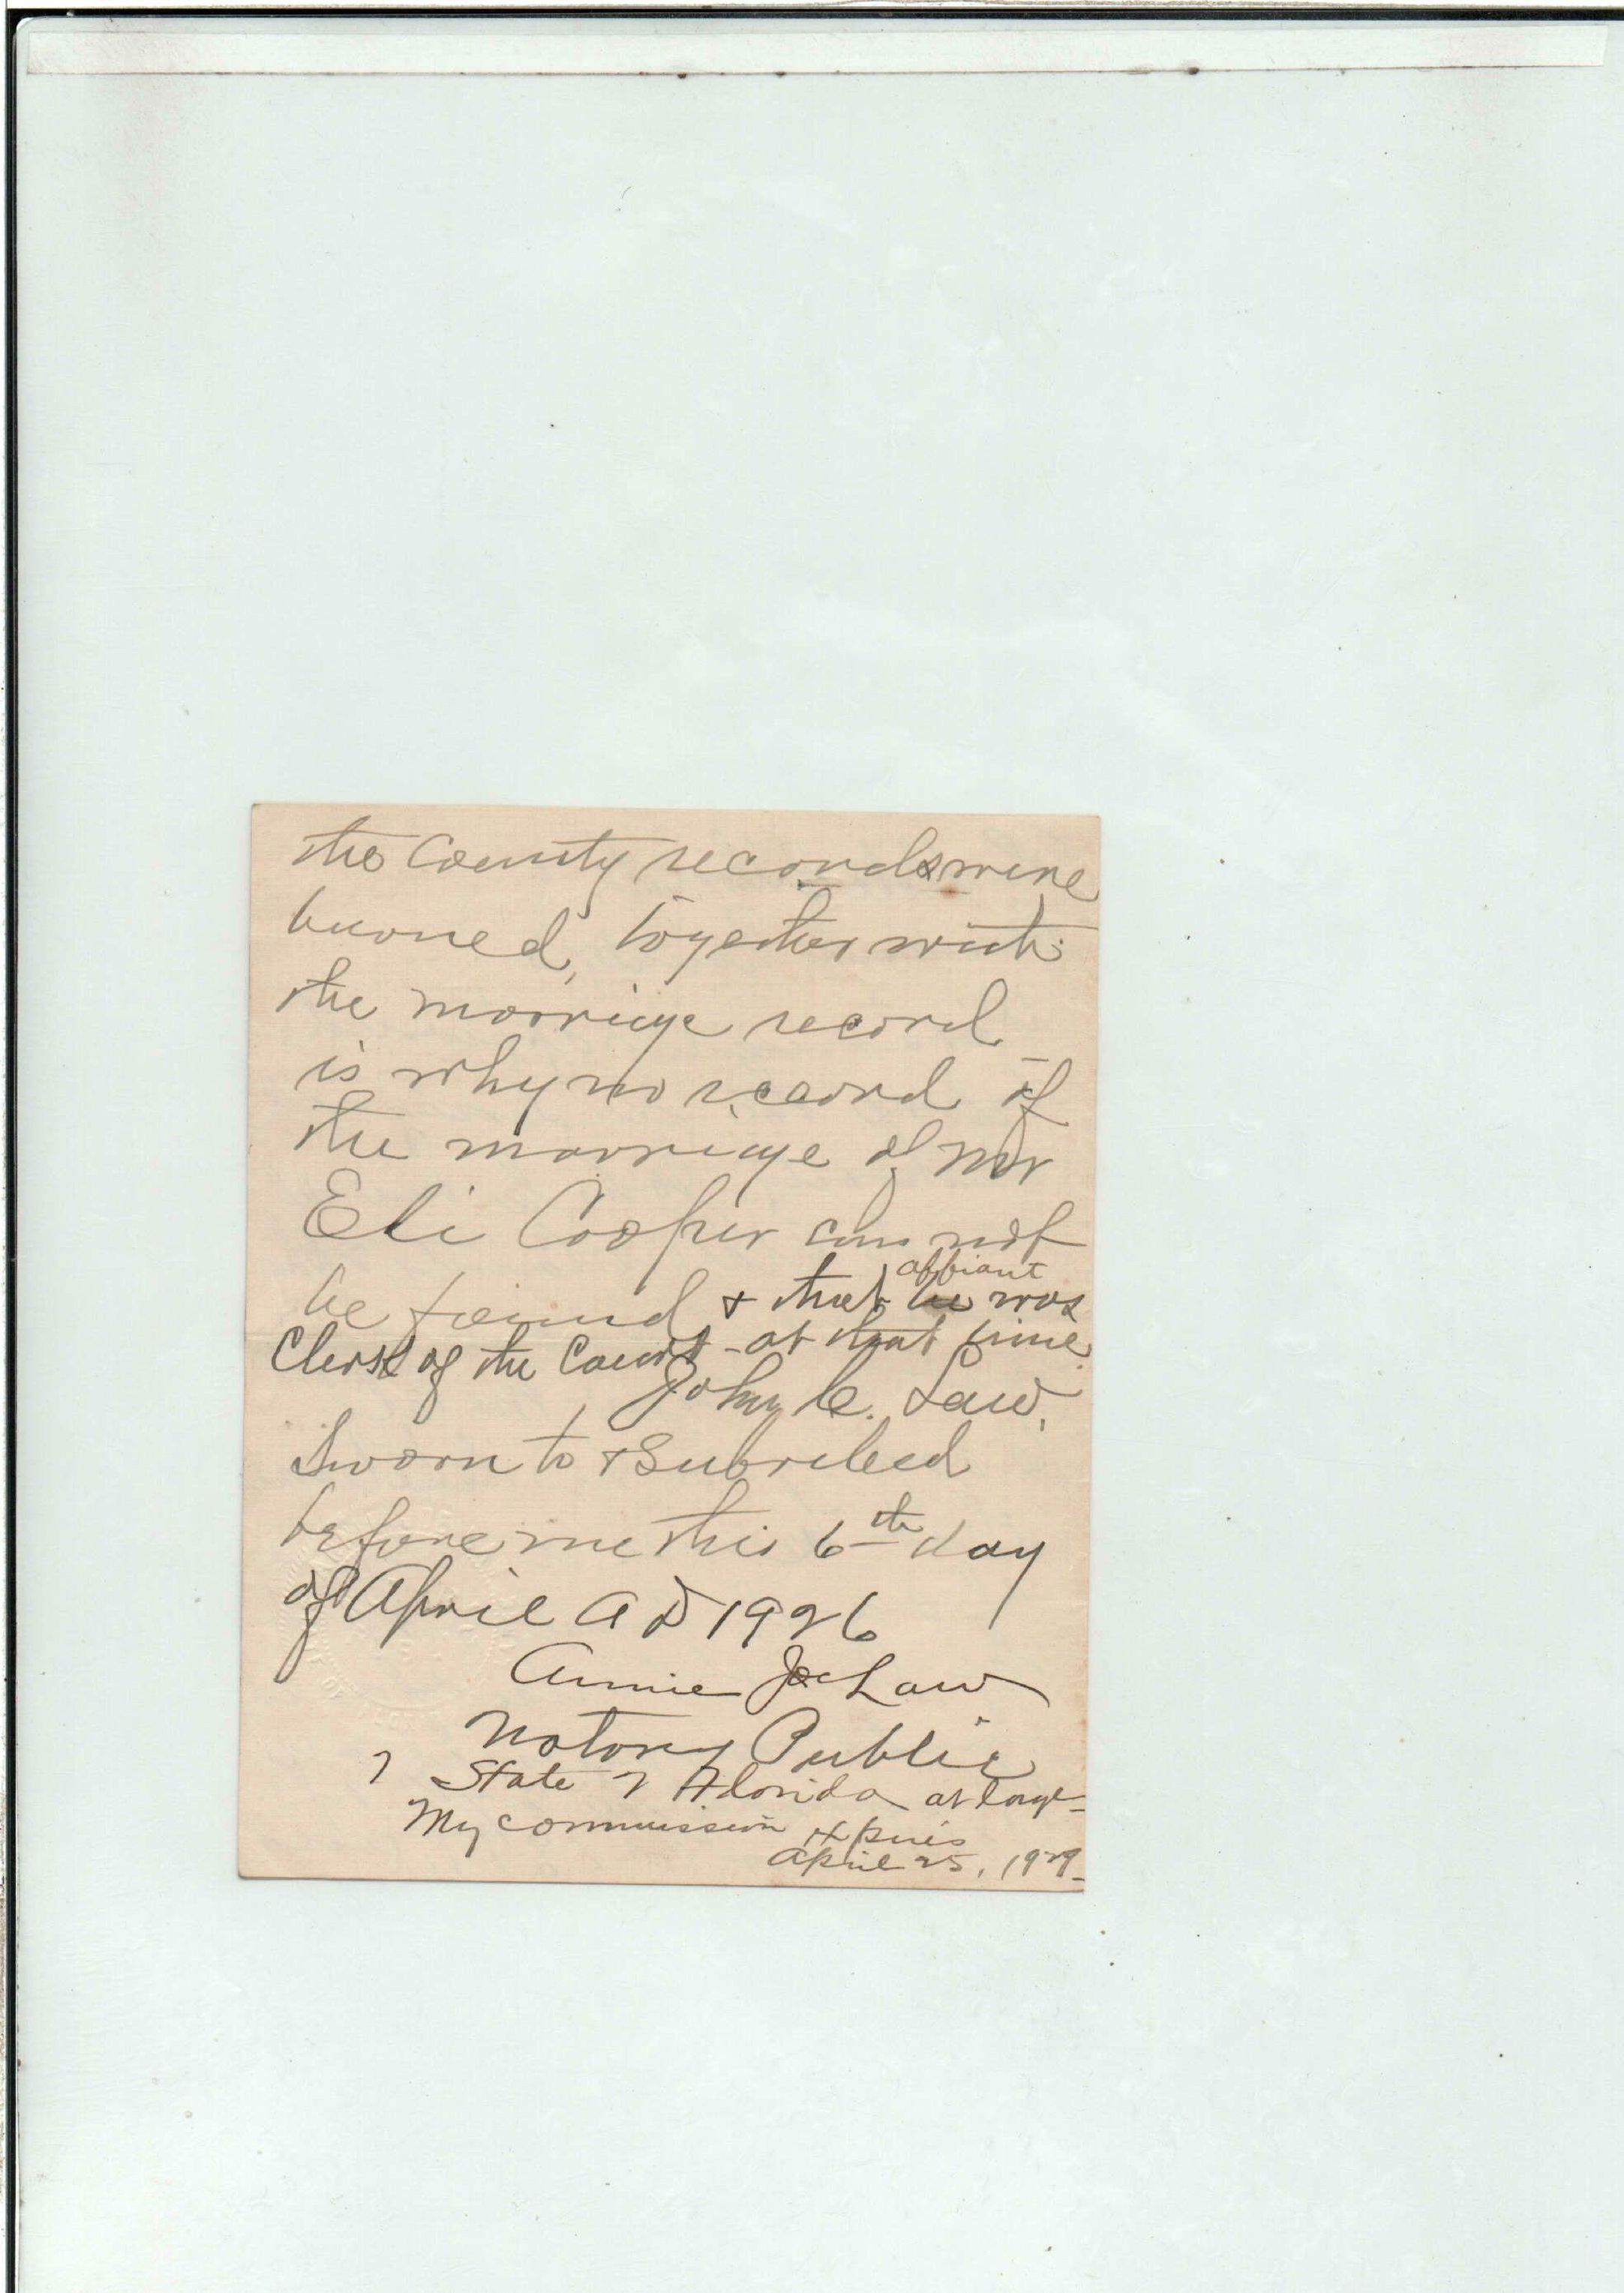 the County records were
burned, together with
the marriage record
is why no record of
the marriage of Mr
Eli Cooper can not
affiant
be found & that he was
Clerk of the Court - at that time.
John C. Law,
Sworn to & Subribed
before me this 6th day
of April A D 1926
Annie Joe Law
Notary Public
State of Florida at large -
My commission expires
April 25, 1929 -